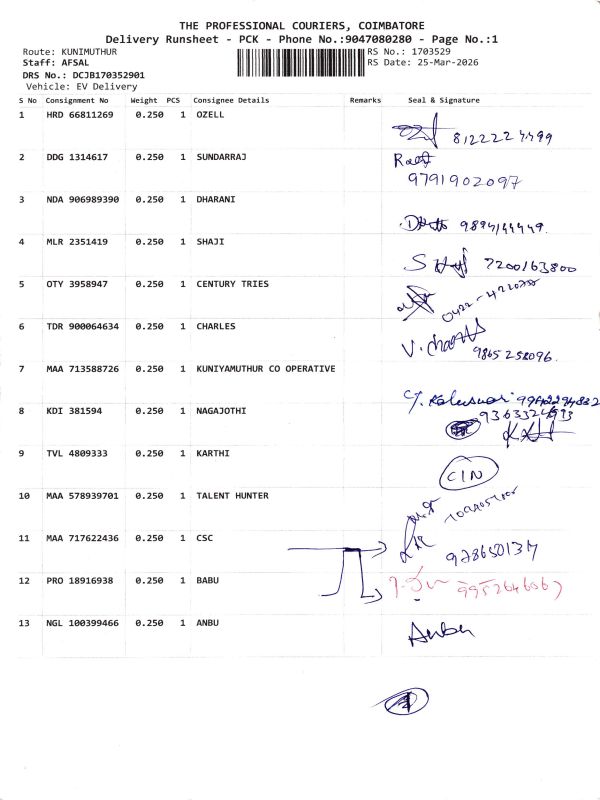 THE PROFESSIONAL COURIERS, COIMBATORE
Delivery Runsheet - PCK - Phone No.:9047080280 - Page No.:1
Route: KUNIMUTHUR RS No.: 1703529
Staff: AFSAL RS Date: 25-Mar-2026
DRS No.: DCJB170352901
Vehicle: EV Delivery
S No Consignment No Weight PCS Consignee Details Remarks Seal & Signature
1 HRD 66811269 0.250 1 OZELL
8122224499
2 DDG 1314617 0.250 1 SUNDARRAJ
9791902097
3 NDA 906989390 0.250 1 DHARANI
9894144449.
4 MLR 2351419 0.250 1 SHAJI
7200163800
5 OTY 3958947 0.250 1 CENTURY TRIES
6 TDR 900064634 0.250 1 CHARLES
9865258096.
7 MAA 713588726 0.250 1 KUNIYAMUTHUR CO OPERATIVE
8 KDI 381594 0.250 1 NAGAJOTHI
9 TVL 4809333 0.250 1 KARTHI
CIN
10 MAA 578939701 0.250 1 TALENT HUNTER
11 MAA 717622436 0.250 1 CSC
12 PRO 18916938 0.250 1 BABU
13 NGL 100399466 0.250 1 ANBU
Anbu